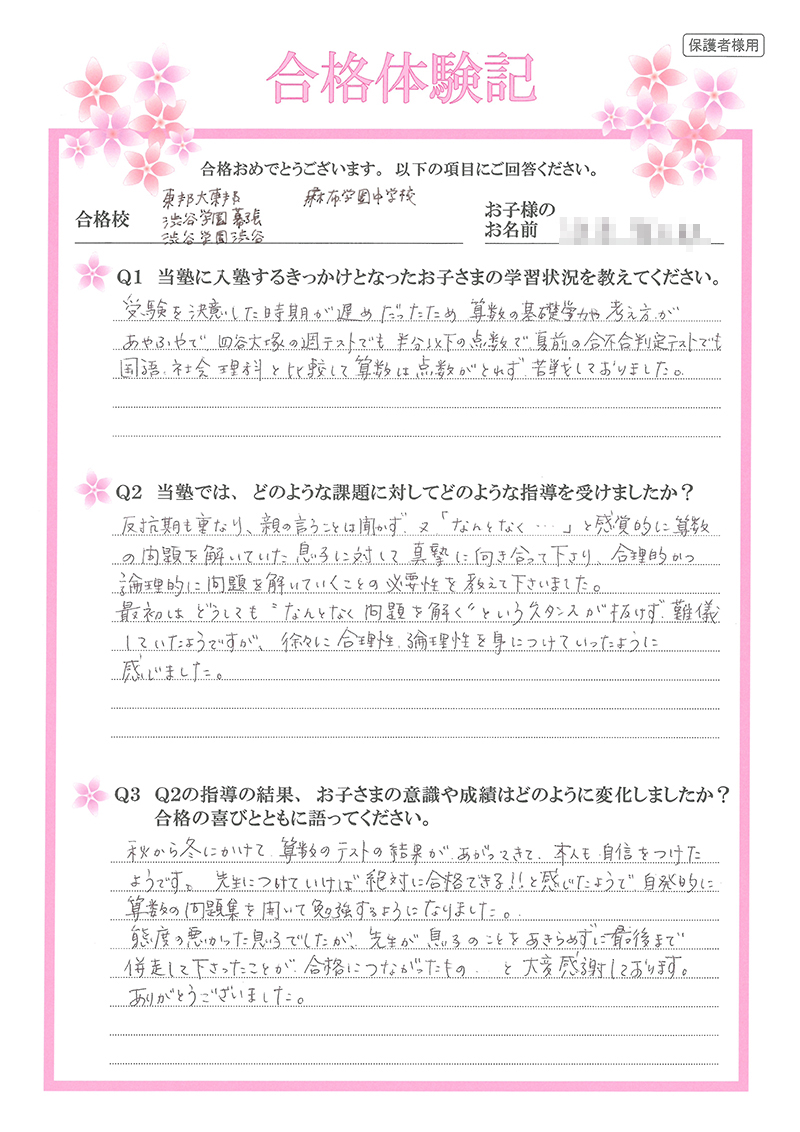 保護者様用
合格体験記
合格おめでとうございます。以下の項目にご回答ください。
合格校
東邦大東邦 麻布学園中学校
渋谷学園幕張
渋谷学園渋谷
お子様の
お名前
Q1 当塾に入塾するきっかけとなったお子さまの学習状況を教えてください。
受験を決意した時期が遅めだったため 算数の基礎学力や考え方が
あやふやで 四谷大塚の週テストでも 半分以下の点数で 夏前の合不合判定テストでも
国語、社会 理科と比較して算数は点数がとれず、苦戦しておりました。
Q2 当塾では、どのような課題に対してどのような指導を受けましたか？
反抗期も重なり、親の言うことは聞かず、又「なんとなく…」と感覚的に算数
の問題を解いていた息子に対して 真摯に向き合って下さり、合理的かつ
論理的に問題を解いていくことの必要性を教えて下さいました。
最初はどうしても“なんとなく問題を解く”というスタンスが抜けず、難儀
していたようですが、徐々に合理性、論理性を身につけていったように
感じました。
Q3 Q2の指導の結果、お子さまの意識や成績はどのように変化しましたか？
合格の喜びとともに語ってください。
秋から冬にかけて、算数のテストの結果が、あがってきて、本人も自信をつけた
ようです。先生につけていけば絶対に合格できる!!と感じたようで自発的に
算数の問題集を用いて勉強するようになりました。
態度の悪かった息子でしたが、先生が息子のことをあきらめずに最後まで
併走して下さったことが、合格につながったもの…と大変感謝しております。
ありがとうございました。